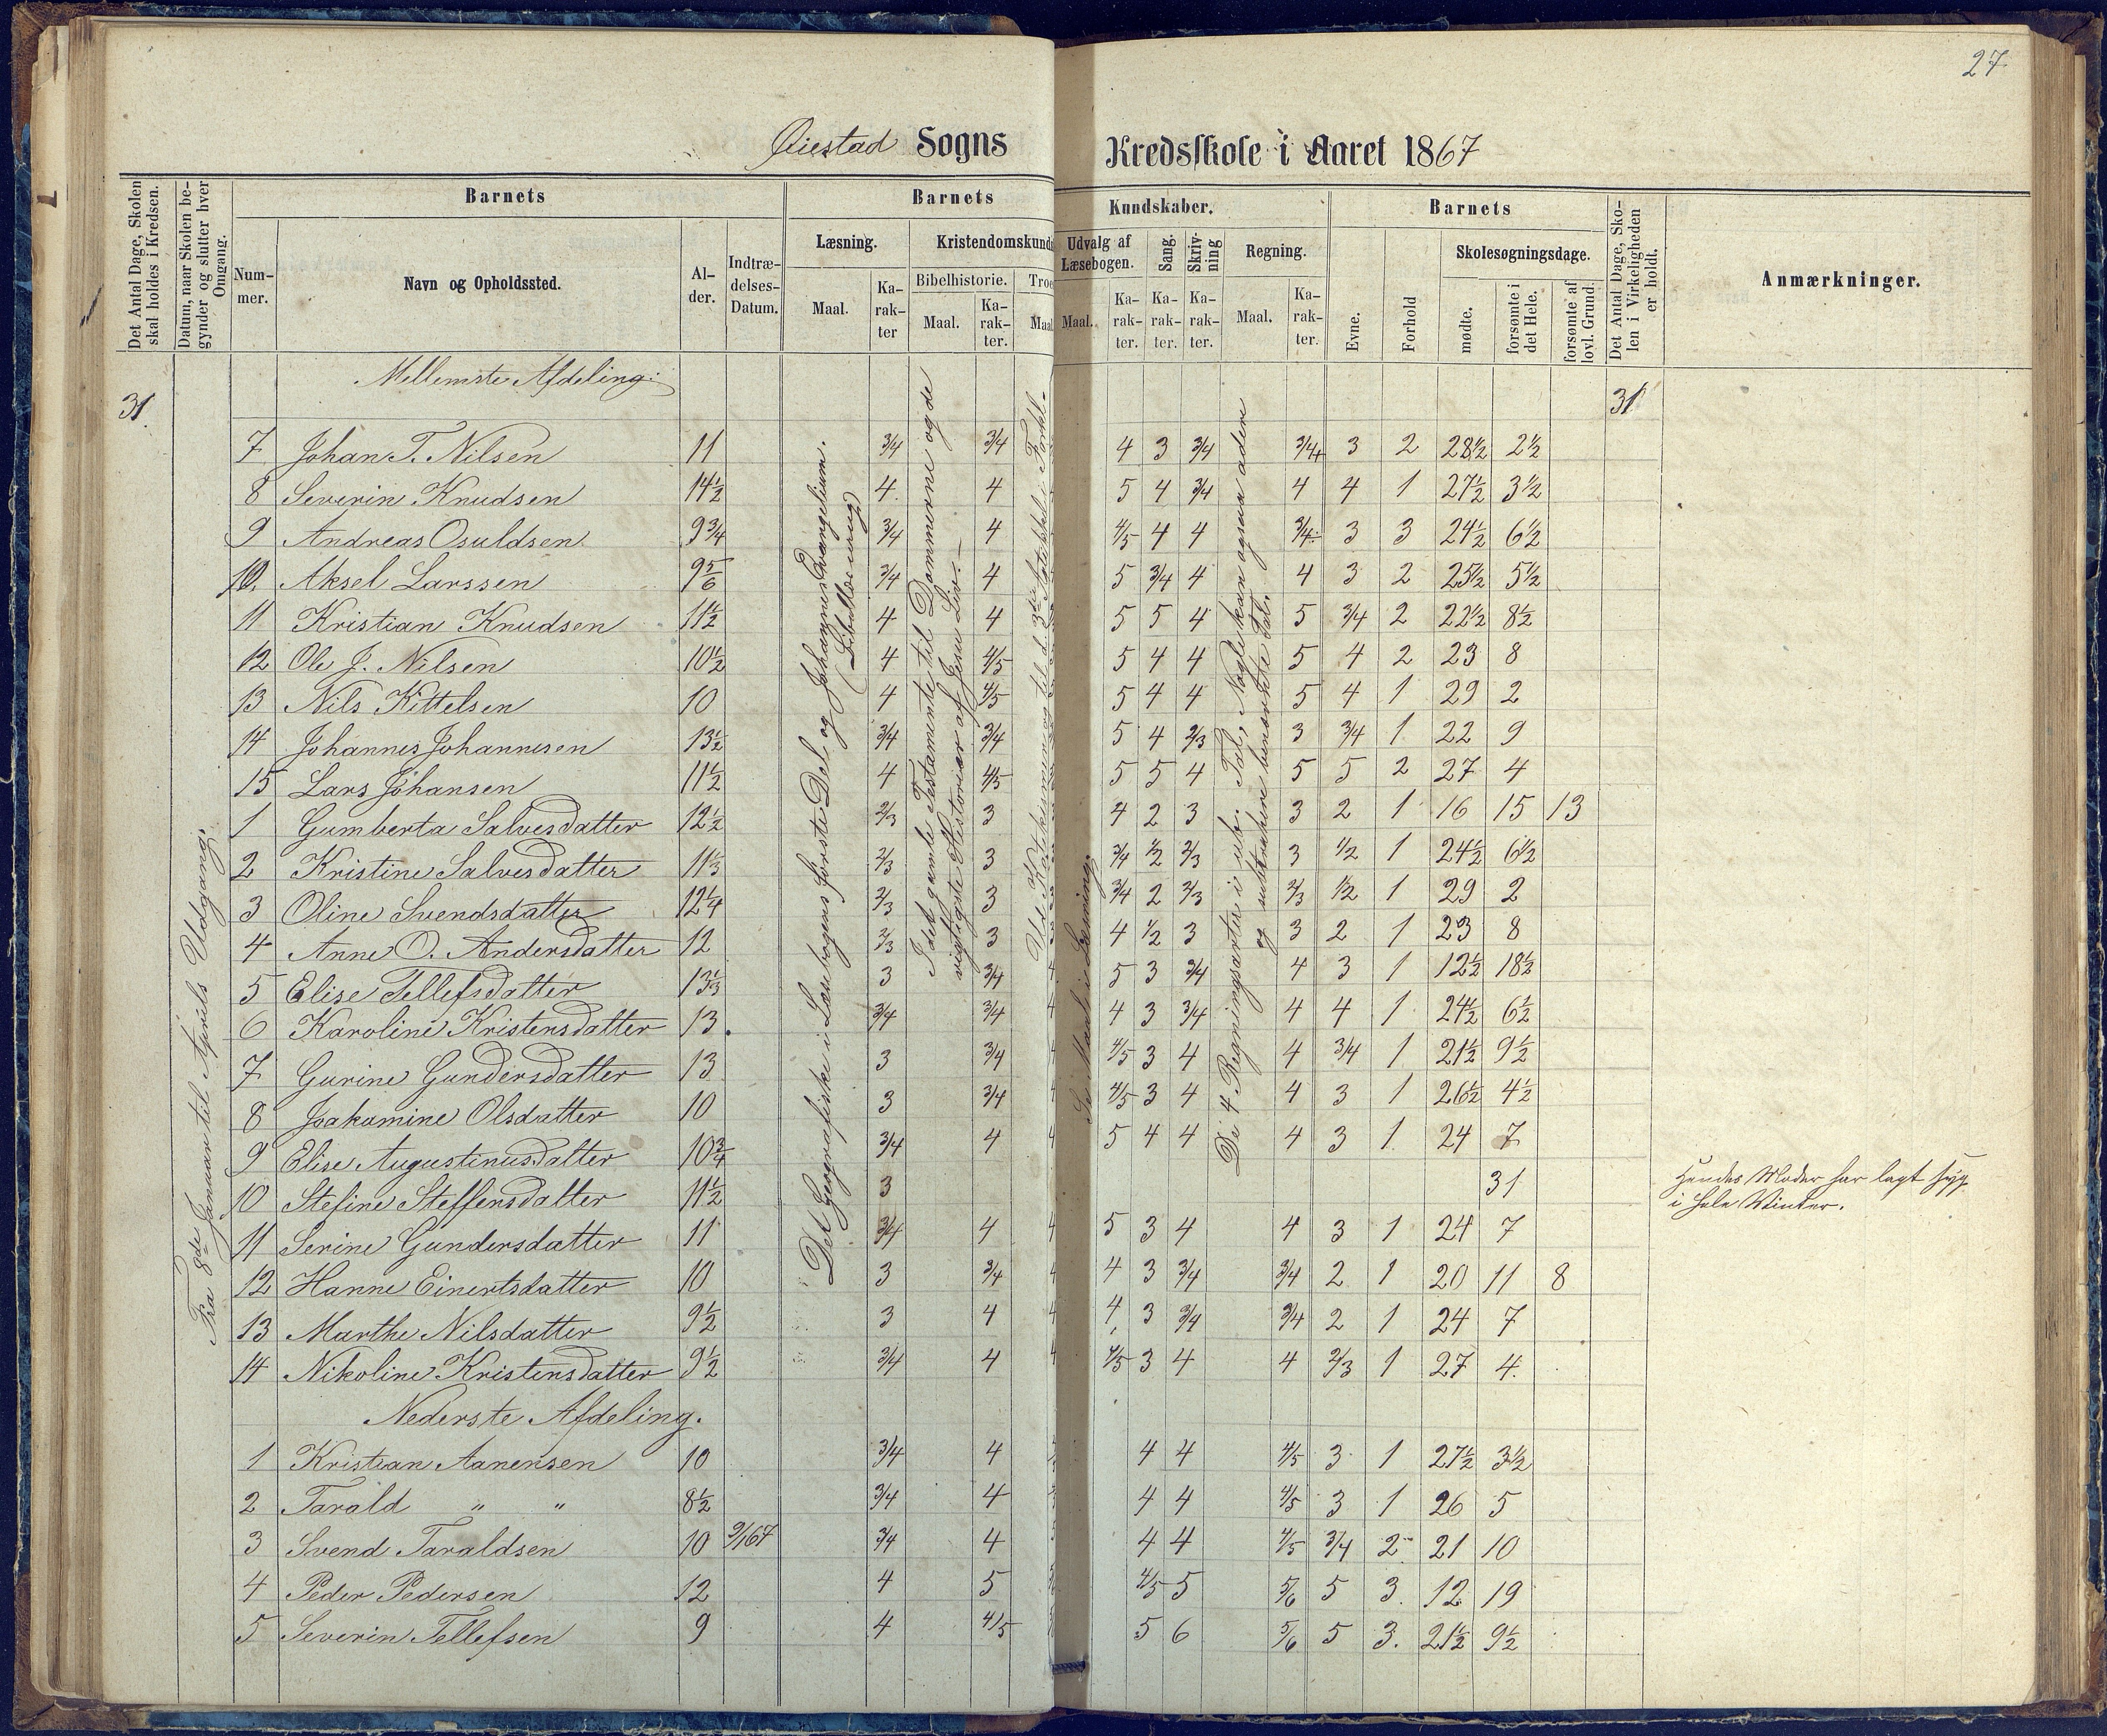 27
Øiestad Sogns Kredsskole i Aaret 1867
Det Antal Dage, Skolen skal holdes i Kredsen.
Datum, naar Skolen begynder og slutter hver Omgang.
Barnets
Nummer.
Navn og Opholdssted.
Alder.
Indtrædelses-Datum.
Barnets Kundskaber.
Læsning.
Maal.
Karakter
Kristendomskund
Bibelhistorie.
Maal.
Karakter.
Troe
Maal
Udvalg af Læsebogen.
Maal.
Karakter.
Sang.
Karakter.
Skrivning
Karakter.
Regning.
Maal.
Karakter.
Barnets
Evne.
Forhold
Skolesøgningsdage.
mødte.
forsømte i det Hele.
forsømte af lovl. Grund.
Det Antal Dage, Skolen i Virkeligheden er holdt.
Anmærkninger.
Mellemste Afdeling:
31.
31
Fra 8de Januar til Aprils Udgang.
Det Geografiske i Læsebogens første Del og Johannes Evangelium.
(Bibellæsning)
I det gamle Testamente til Dommerne og de
vigtigste Historier af Jesu Liv.
Se Maal i Læsning.
De 4 Regningsarter i ub. Tal, Nogle kan ogsaa adere
og subtrahere benævnte Tal.
7 Johan T. Nilsen 11 3/4 3/4 4 3 3/4 3/4+ 3 2 28½ 2½
8 Severin Knudsen 14½ 4 4 5 4 3/4 4 4 1 27½ 3½
9 Andreas Osuldsen 9¾ 3/4 4 4/5 4 4 3/4÷ 3 3 24½ 6½
10. Aksel Larssen 9 5/6 3/4 4 5 3/4 4 4 3 2 25½ 5½
11 Kristian Knudsen 11½ 4 4 5 5 4 5 3/4 2 22½ 8½
12 Ole J. Nilsen 10½ 4 4/5 5 4 4 5 4 2 23 8
13 Nils Kittelsen 10 4 4/5 5 4 4 5 4 1 29 2
14 Johannes Johannesen 13½ 3/4 3/4 5 4 2/3 3 3/4 1 22 9
15 Lars Johansen 11½ 4 4/5 5 5 4 5 5 2 27 4
1 Gumberta Salvesdatter 12½ 2/3 3 4 2 3 3 2 1 16 15 13
2 Kristine Salvesdatter 11⅓ 2/3 3 3/4 1/2 2/3 3 1/2 1 24½ 6½
3 Oline Svendsdatter 12¼ 2/3 3 3/4 2 2/3 2/3 1/2 1 29 2
4 Anne O. Andersdatter 12 2/3 3 4 1/2 3 3 2 1 23 8
5 Elise Tellefsdatter 13⅓ 3 3/4 5 3 3/4 4 3 1 12½ 18½
6 Karoline Kristensdatter 13. 3/4 3/4 4 3 3/4 4 4 1 24½ 6½
7 Gurine Gundersdatter 13 3 3/4 4/5 3 4 4 3/4 1 21½ 9½
8 Joakomine Olsdatter 10 3 3/4 4/5 3 4 4 3 1 26½ 4½
9 Elise Augustinusdatter 10¾ 3/4 4 5 4 4 4 3 1 24 7
10 Stefine Steffensdatter 11½ 3 31 Hendes Moder har lagt syg
i hele Winter.
11 Serine Gundersdatter 11 3/4 4 5 3 4 4 3 1 24 7
12 Hanne Einertsdatter 10 3 3/4 4 3 3/4 3/4 2 1 20 11 8
13 Marthe Nilsdatter 9½ 3 4 4 3 3/4 3/4 2 1 24 7
14 Nikoline Kristensdatter 9½ 3/4 4 4/5 3 4 4 2/3 1 27 4.
Nederste Afdeling.
1 Kristian Aanensen 10 3/4 4 4 4 4/5 3 1 27½ 3½
2 Tarald " " 8½ 3/4 4 4 4 4/5 3 1 26 5
3 Svend Taraldsen 10 9/1 67 3/4 4 4 4 4/5 3/4 2 21 10
4 Peder Pedersen 12 4 5 4/5 5 5/6 5 3. 12 19
5 Severin Tellefsen 9 4 4/5 5 6 5/6 5 3. 21½ 9½